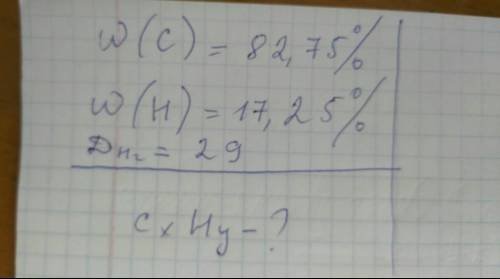 W(C) = 82,75%
W(H) = 17,25%
DH₂ = 29
CxHy - ?